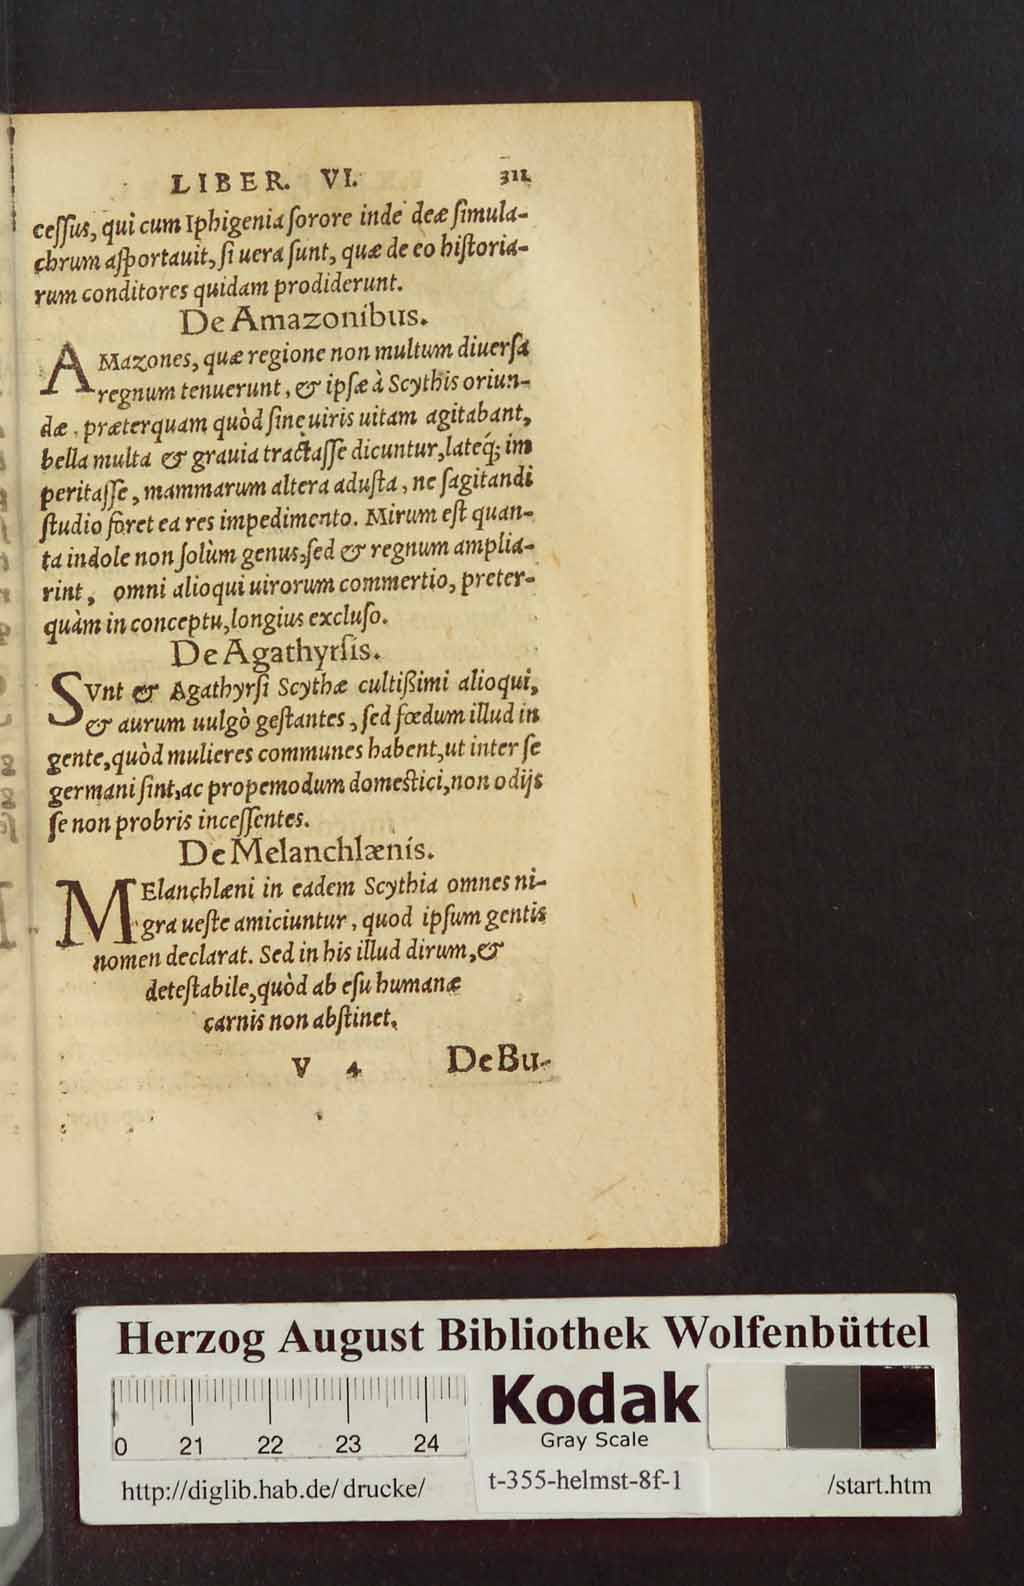 LIBER. VI. 311
ceſſus, qui cum Iphigenia ſorore inde deæ ſimula-
chrum aſportauit, ſi uera ſunt, quæ de eo hiſtoria-
rum conditores quidam prodiderunt.
De Amazonibus.
AMazones, quæ regione non multum diuerſa
regnum tenuerunt, & ipſæ à Scythis oriun-
dæ, præterquam quòd ſine uiris uitam agitabant,
bella multa & grauia tractaſſe dicuntur, lateq́; im
peritaſſe, mammarum altera aduſta, ne ſagitandi
ſtudio foret ea res impedimento. Mirum eſt quan-
ta indole non ſolùm genus, ſed & regnum amplia-
rint, omni alioqui uirorum commertio, preter-
quàm in conceptu, longius excluſo.
De Agathyrſis.
SVnt & Agathyrſi Scythæ cultißimi alioqui,
& aurum uulgò geſtantes, ſed fœdum illud in
gente, quòd mulieres communes habent, ut inter ſe
germani ſint, ac propemodum domeſtici, non odijs
ſe non probris inceſſentes.
De Melanchlænis.
MElanchlæni in eadem Scythia omnes ni-
gra ueſte amiciuntur, quod ipſum gentis
nomen declarat. Sed in his illud dirum, &
deteſtabile, quòd ab eſu humanæ
carnis non abſtinet.
V 4 De Bu-
Herzog August Bibliothek Wolfenbüttel
Kodak
Gray Scale
0 21 22 23 24
http://diglib.hab.de/drucke/ t-355-helmst-8f-1 /start.htm